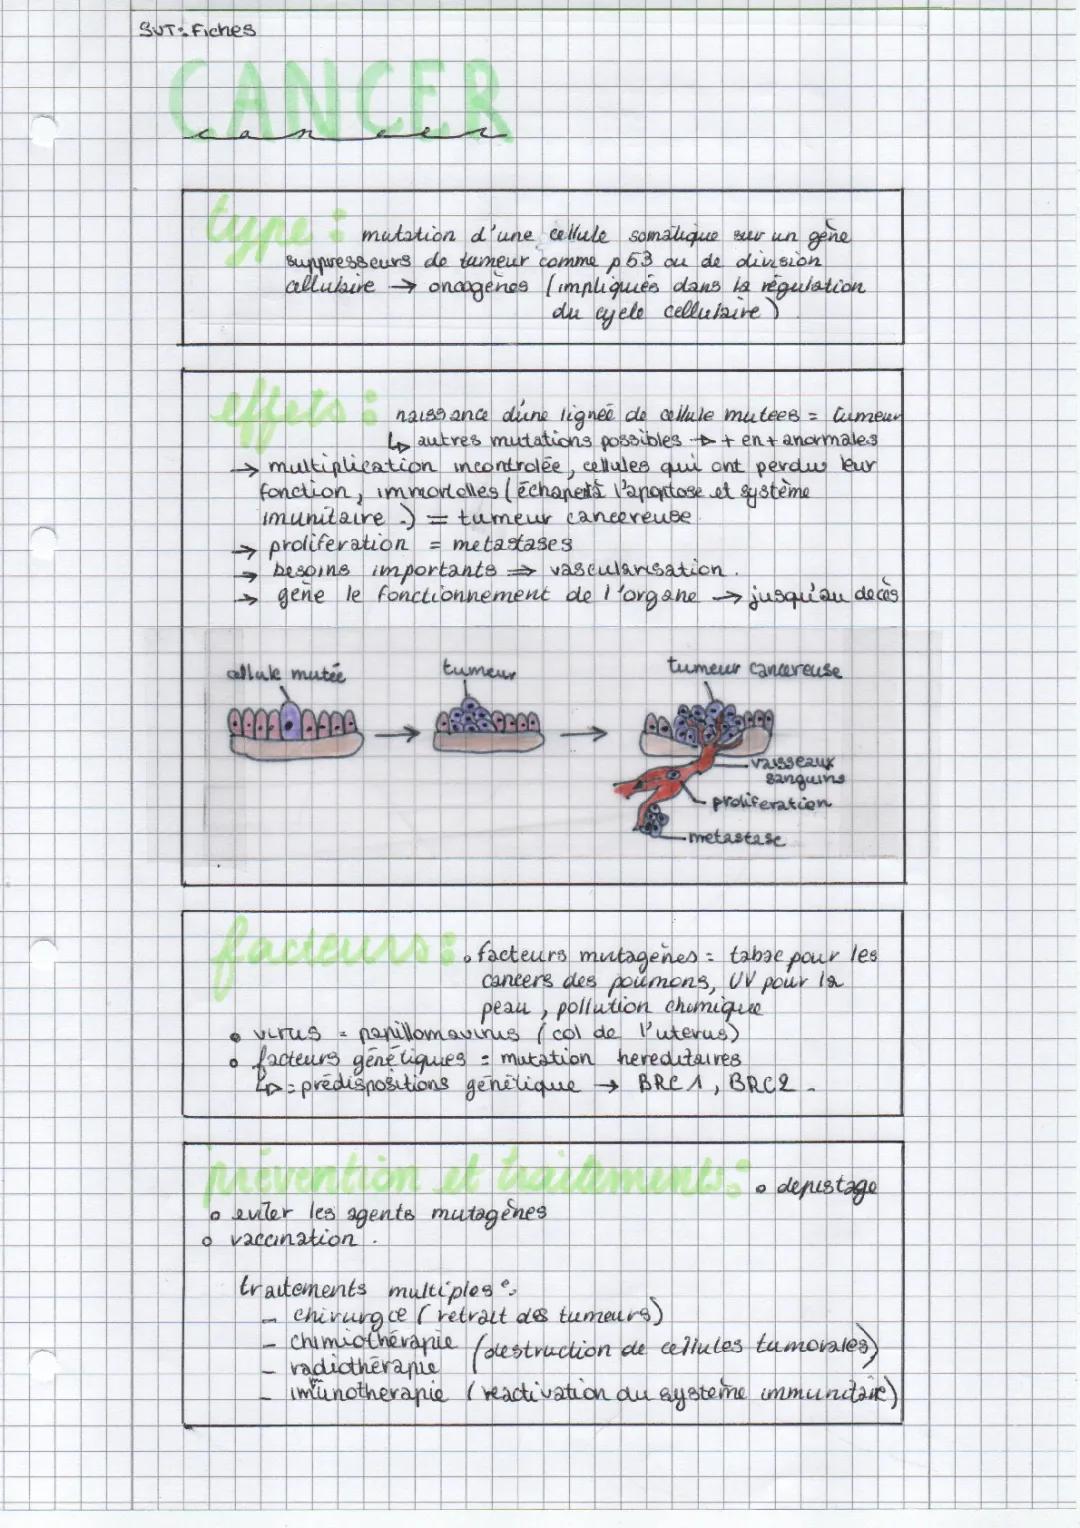 SVT: Fiches
CANCER
cancer
type : mutation d'une cellule somatique sur un gène
suppresseurs de tumeur comme p53 ou de division
cellulaire → oncogènes (impliqués dans la régulation
du cycle cellulaire).
effets : naissance d'une lignée de cellule mutees = tumeur
↳ autres mutations possibles → + en + anormales
→ multiplication incontrolée, cellules qui ont perdus leur
fonction, immortelles (échapent à l'apoptose et système
imunitaire.) = tumeur cancereuse
→ proliferation = metastases
→ besoins importants ⇒ vascularisation.
→ gêne le fonctionnement de l'organe → jusqu'au deces
cellule mutée
tumeur
tumeur cancereuse
vaisseaux
sanguins
proliferation
metastase
facteurs : • facteurs mutagènes = tabac pour les
cancers des poumons, UV pour la
peau, pollution chimique
• virus = papillomavirus (col de l'uterus)
• facteurs génétiques = mutation hereditaires
↳ = prédispositions génétique → BRC1, BRC2.
prévention et traitements : • depistage
• eviter les agents mutagènes
• vaccination.
traitements multiples :
- chirurgie (retrait des tumeurs)
- chimiothérapie (destruction de cellules tumorales)
- radiothérapie
- imunotherapie (reactivation du systeme immunitaire)